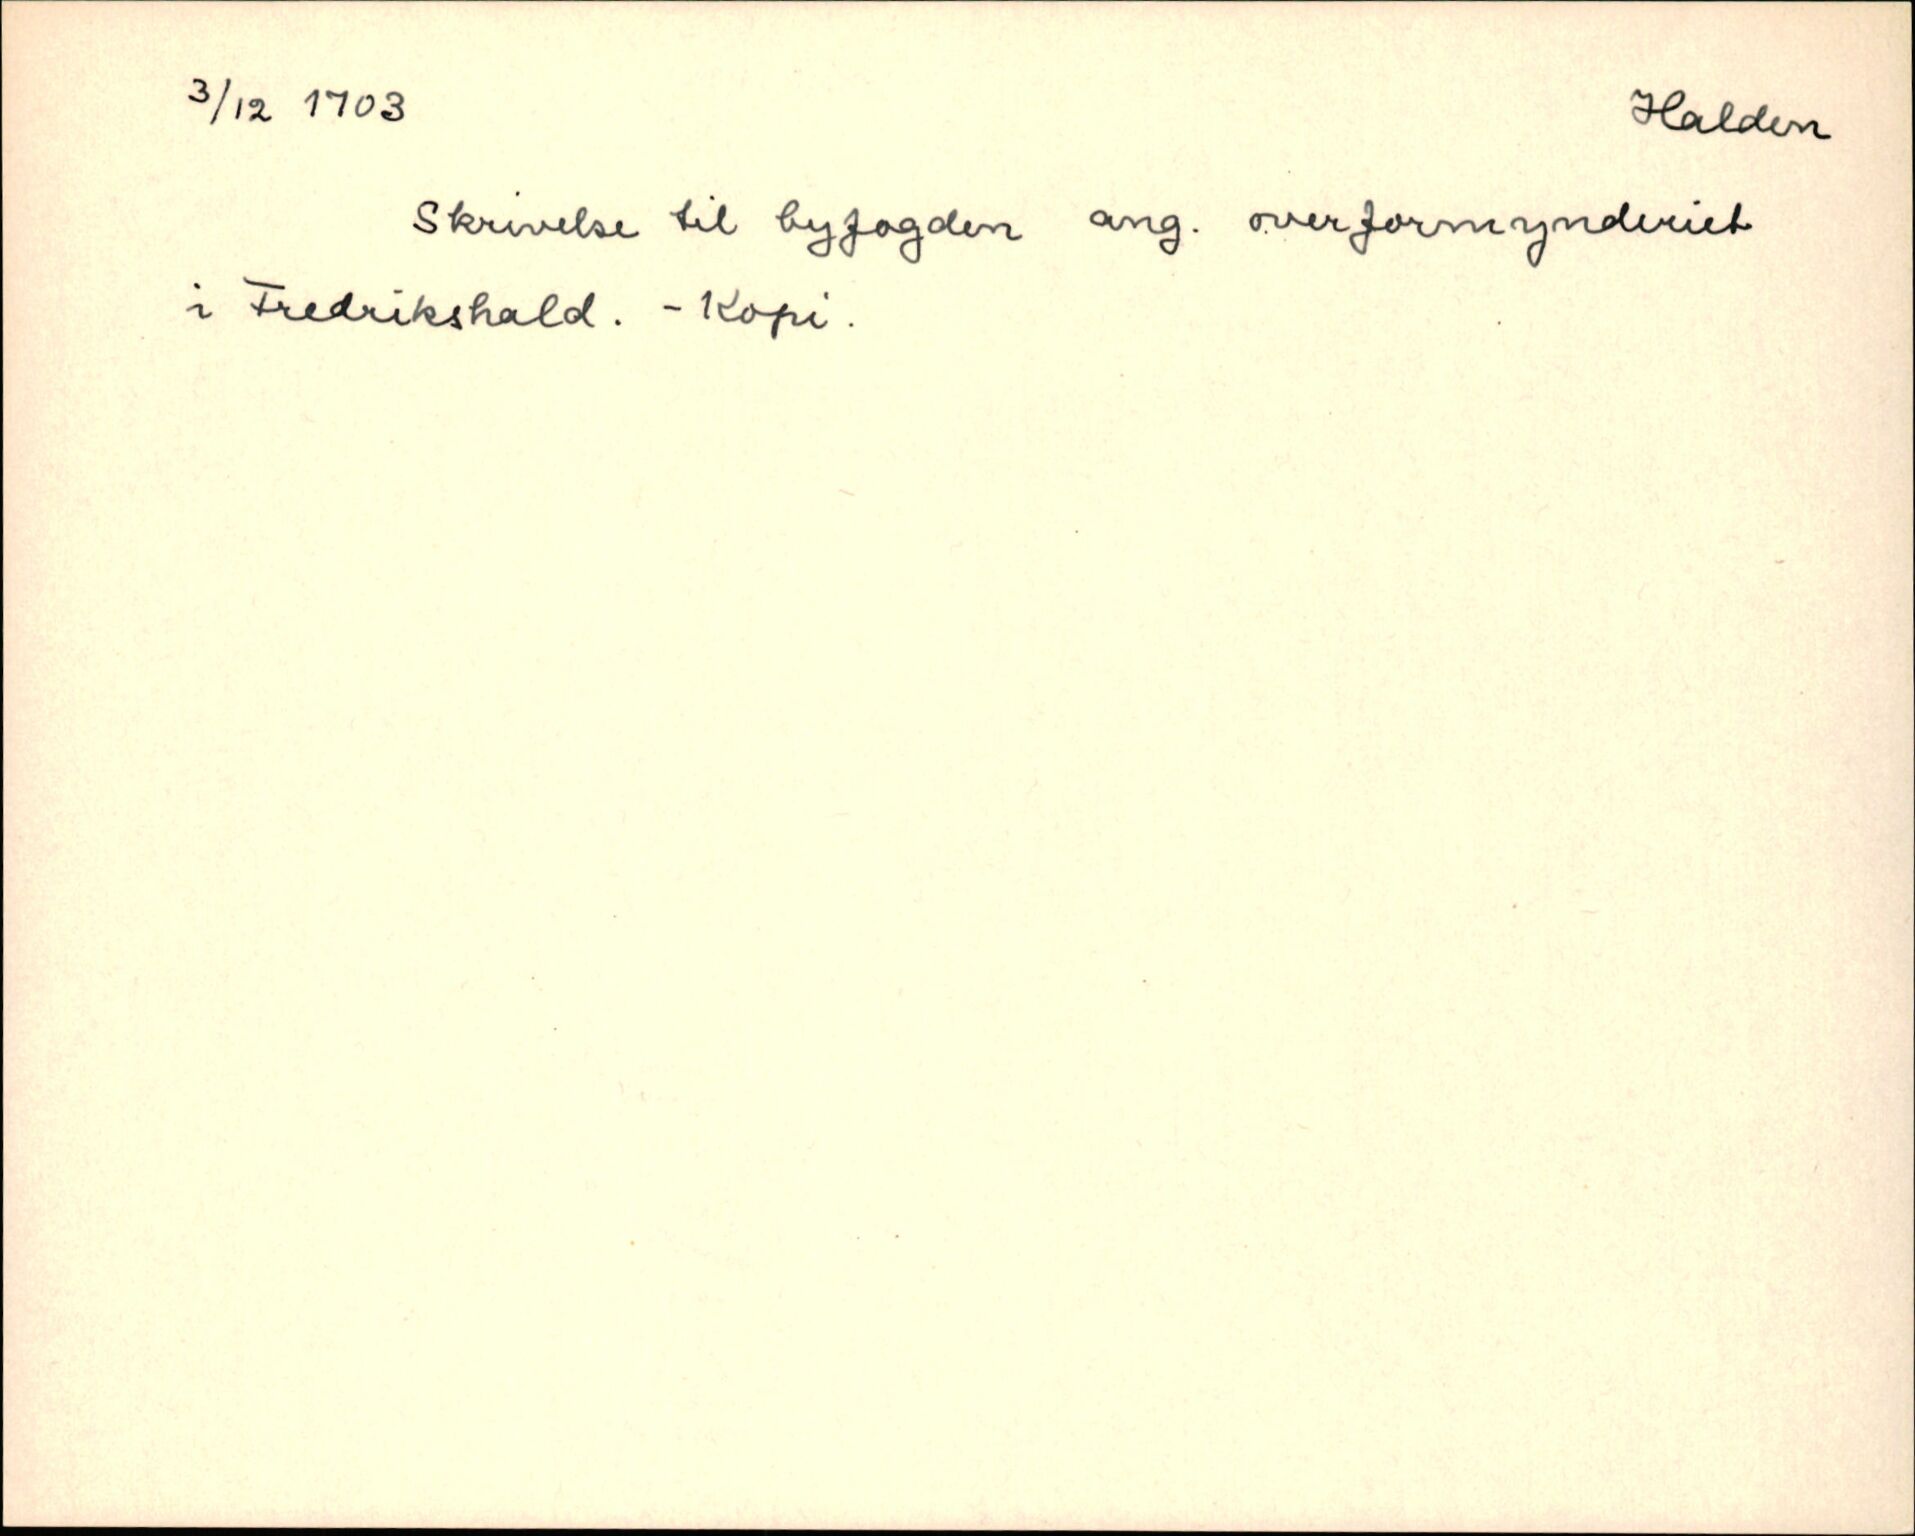 3/12 1703 Halden
Skrivelse til byfogden ang. overformynderiet
i Fredrikshald. - Kopi.